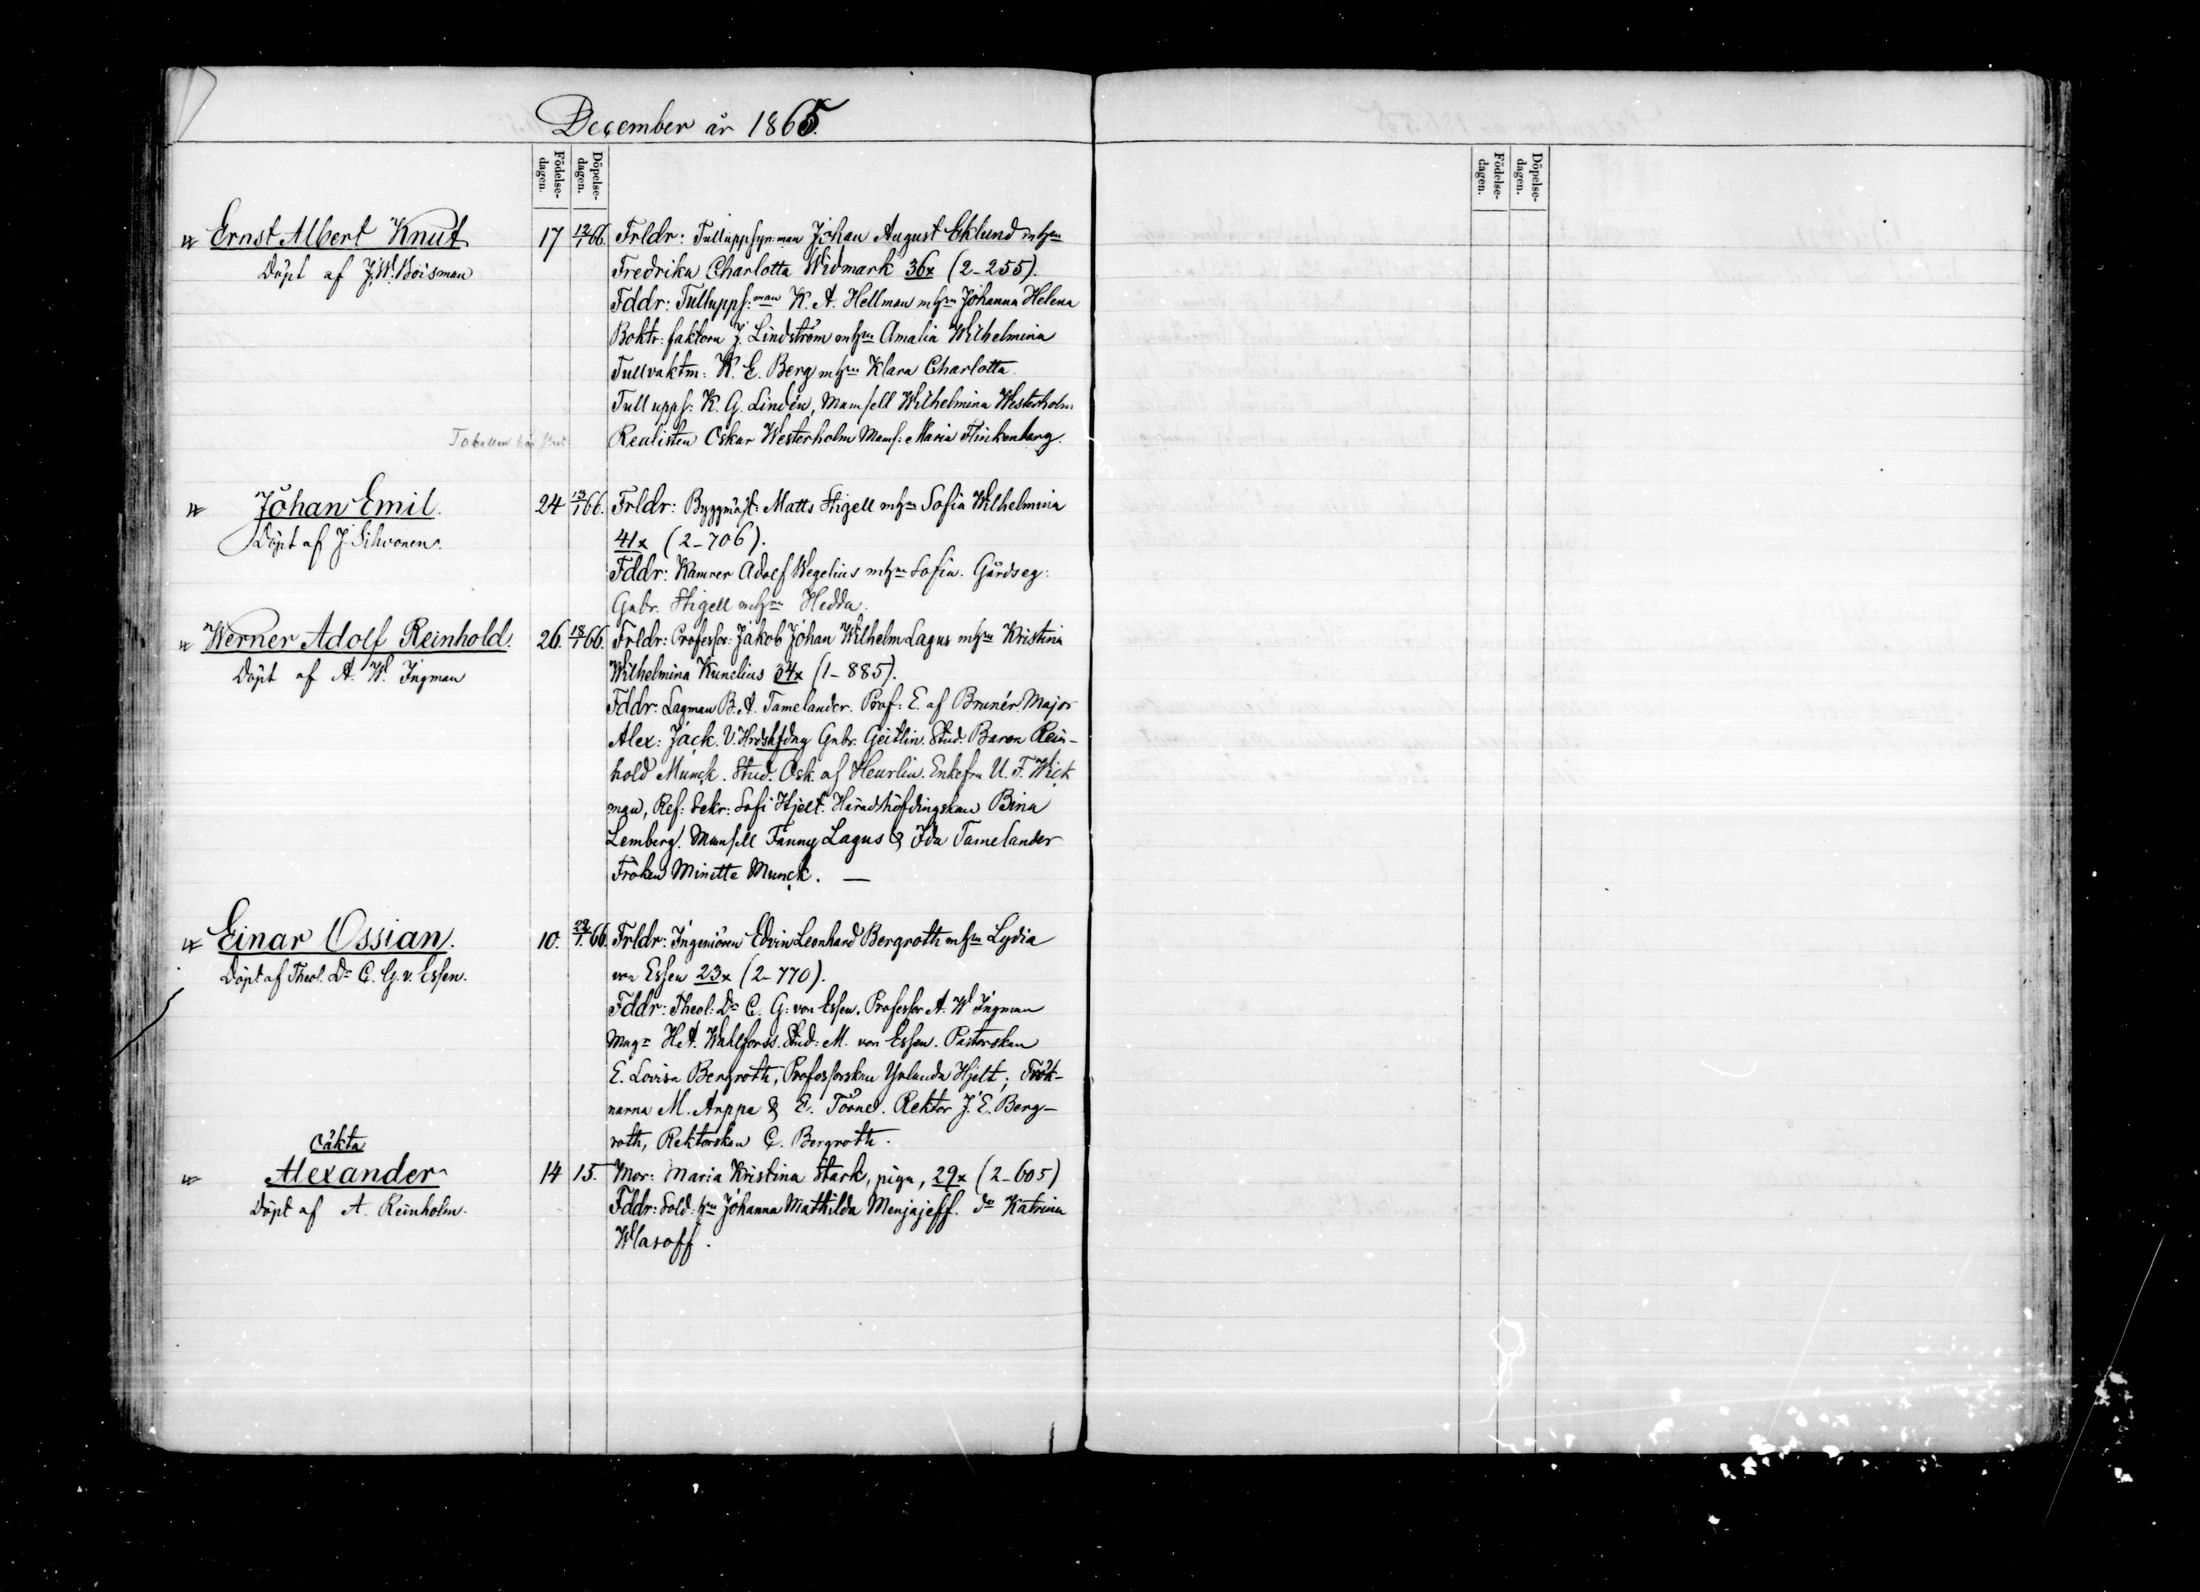 December år 1865.
Födelse-dagen. Döpelse-dagen.
Födelse-dagen. Döpelse-dagen.
Ernst Albert Knut 17 12/1 66. Frldr: Tulluppsyn:man Johan August Eklund mhru
Döpt af J. W. Boisman Fredrika Charlotta Widmark 36x (2-255).
Fddr: Tullupps:man K. A. Hellman mhru Johanna Helena
Boktr: faktorn J. Lindström mhru Amalia Wilhelmina
Tullvaktm: K. E. Berg mhru Klara Charlotta
Tullupps: K. G. Lindén, Mamsell Wilhelmina Westerholm
Tabellen Realisten Oskar Westerholm Mams: Maria Flinkenberg.
Johan Emil. 24 13/1 66. Frldr: Byggmäst: Matts Stigell mhru Sofia Wilhelmina
Döpt af J. Sihvonen. 41x (2-706).
Fddr: Kamrer Adolf Wegelius mhru Sofia. Gårdseg:
Gabr. Stigell mhru Hedda.
Werner Adolf Reinhold. 26. 18/1 66. Frldr: Professor: Jakob Johan Wilhelm Lagus mhru Kristina
Döpt af A. W. Ingman Wilhelmina Kunelius 34x (1-885).
Fddr: Lagman B. A. Tamelander. Prof: E. af Brunér. Major
Alex: Jack. V. Hrdshfdng Gabr. Geitlin. Stud. Baron Rein-
hold Munck. Stud. Osk. af Heurlin. Enkefru U. F. Wick
man, Ref: Sekr: Sofi Hjelt. Häradshöfdingskan Bina
Lemberg. Mamsell Fanny Lagus & Ida Tamelander
Fröken Minette Munck. —
Einar Ossian. 10. 29/1. 66. Frldr: Ingeniören Edvin Leonhard Bergroth mhru Lydia
Döpt af Theol. Dr C. G. v. Essen. von Essen 23x (2-770).
Fddr: Theol: Dr C. G: von Essen. Professor A. W. Ingman
Magr H. A. Wahlforss. Stud: M. von Essen. Pastorskan
E. Lovisa Bergroth, Professorskan Yolanda Hjelt; Frök-
narna M. Arppe & E. Törne. Rektor J. E. Berg-
roth, Rektorskan C. Bergroth.
Oäkta
Alexander 14 15. Mor: Maria Kristina Stark, piga, 29x (2-605)
Döpt af A. Reinholm. Fddr: Sold: hru Johanna Mathilda Menjajeff. do Katrina
Wlasoff.